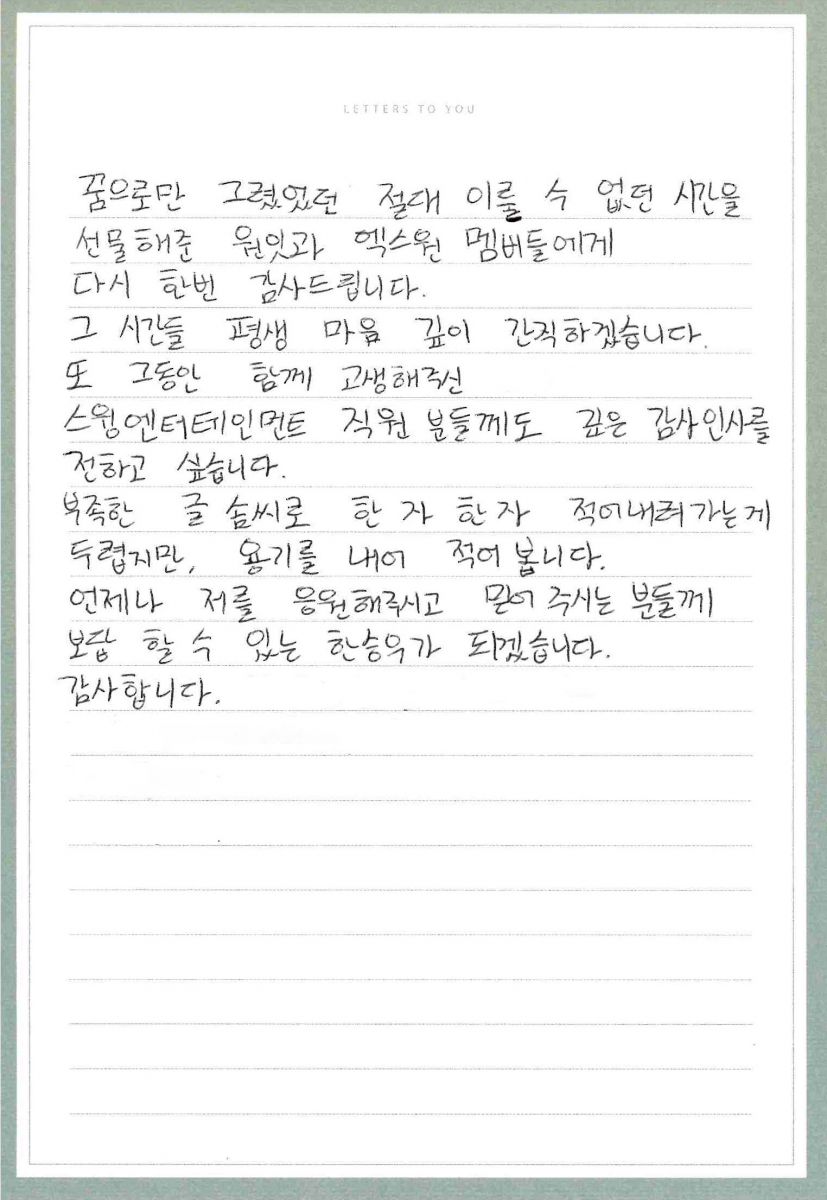 LETTERS TO YOU
꿈으로만 그렸었던 절대 이룰 수 없던 시간을
선물해준 원잇과 엑스원 멤버들에게
다시 한번 감사드립니다.
그 시간들 평생 마음 깊이 간직하겠습니다.
또 그동안 함께 고생해주신
스윙엔터테인먼트 직원 분들께도 깊은 감사인사를
전하고 싶습니다.
부족한 글 솜씨로 한 자 한 자 적어내려가는게
두렵지만, 용기를 내어 적어 봅니다.
언제나 저를 응원해주시고 믿어 주시는 분들께
보답 할 수 있는 한승우가 되겠습니다.
감사합니다.